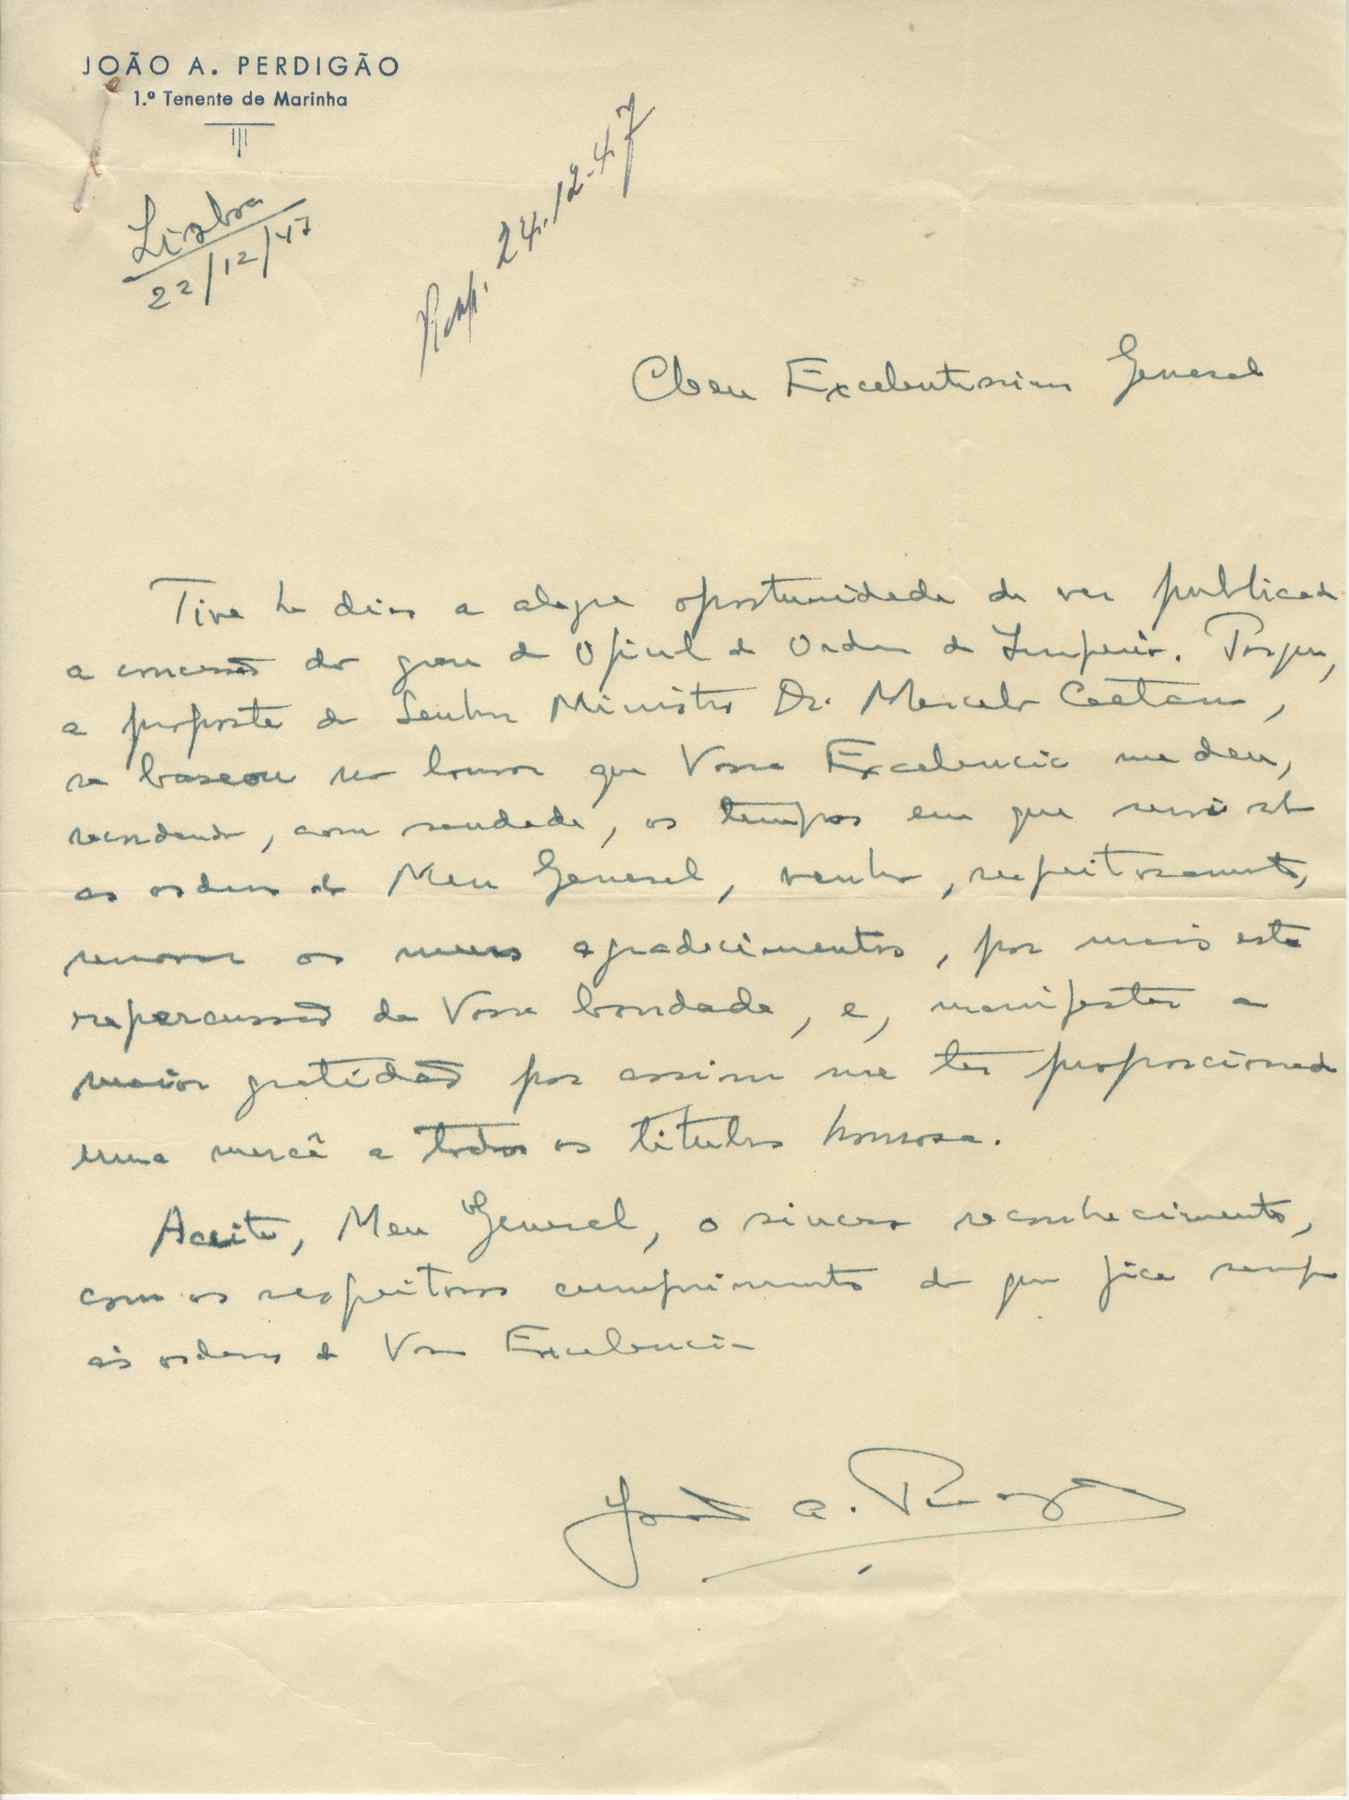 JOÃO A. PERDIGÃO
1.º Tenente de Marinha
Lisboa
22/12/47
Resp. 24.12.47
Meu Excelentissimo General
Tive ha dias a alegre oportunidade de ver publicada
a concessão do grau de Oficial da Ordem do Império. Porque,
a proposta do Senhor Ministro Dr. Marcelo Caetano,
se baseou no louvor que Vossa Excelencia me deu,
recordando, com saudade, os tempos em que servi sob
as ordens do Meu General, venho, respeitosamente,
renovar os meus agradecimentos, por mais esta
repercussão da Vossa bondade, e, manifestar a
maior gratidão por assim me ter proporcionado
uma mercê a todos os titulos honrosa.
Aceite, Meu General, o sincero reconhecimento,
com os respeitosos cumprimentos do que fica sempre
ás ordens de Vossa Excelencia
João A. Perdigão